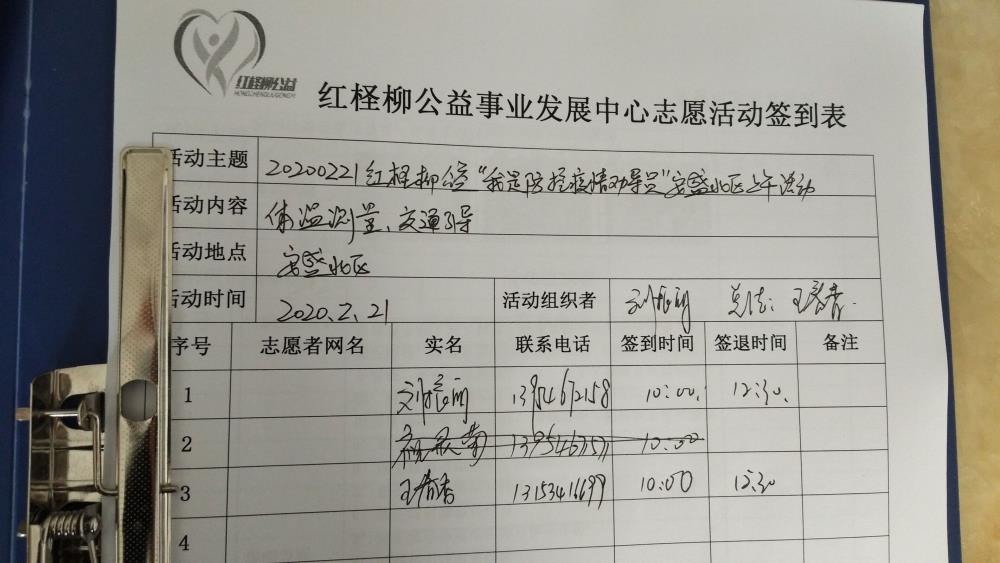 红柽柳公益
HONGCHENGLIUGONGYI
红柽柳公益事业发展中心志愿活动签到表
活动主题 20200221红柽柳公益“我是防控疫情劝导员”安盛北区上午活动
活动内容 体温测量、交通引导
活动地点 安盛北区
活动时间 2020.2.21 活动组织者
序号 志愿者网名 实名 联系电话 签到时间 签退时间 备注
1 10:00. 12:30.
2 10:00
3 13153416699 10:00 12:30
4